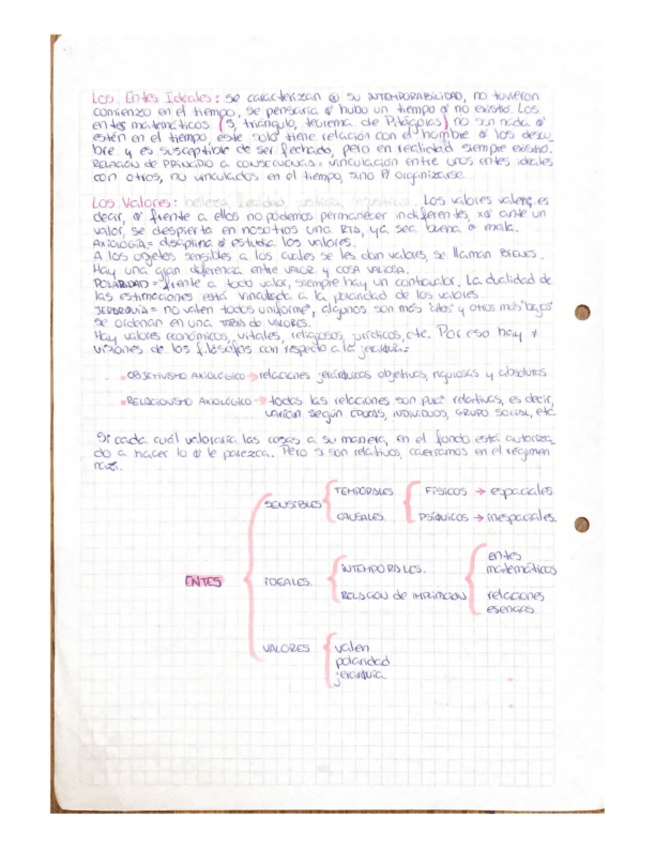 Los Entes Ideales: se caracterizan x su INTEMPORABILIDAD, no tuvieron
comienzo en el tiempo, se pensaria q' hubo un tiempo q' no existió. Los
entes matemáticos (5, triángulo, teorema de Pitágoras) no son nada q'
estén en el tiempo, este solo tiene relación con el hombre q' los descu
bre y es susceptible de ser fechado, pero en realidad siempre existió.
RELACIÓN DE PRINCIPIO A CONSECUENCIA: vinculación entre unos entes ideales
con otros, no vinculados en el tiempo, sino organizarse.
Los Valores: belleza, fealdad, justicia, injusticia. Los valores valen, es
decir, q' frente a ellos no podemos permanecer indiferentes, xq' ante un
valor, se despierta en nosotros una RTA, ya sea buena o mala.
AXIOLOGÍA = disciplina q' estudia los valores.
A los objetos sensibles a los cuales se les dan valores, se llaman BIENES.
Hay una gran diferencia entre VALOR y COSA VALIOSA.
POLARIDAD = frente a todo valor, siempre hay un contravalor. La dualidad de
las estimaciones está vinculada a la polaridad de los valores.
JERARQUÍA = no valen todos uniforme, algunos son más "altos" y otros más "bajos"
se ordenan en una TABLA DE VALORES.
Hay valores económicos, vitales, religiosos, jurídicos, etc. Por eso hay ≠
visiones de los filósofos con respecto a la jerarquía:
OBJETIVISMO AXIOLÓGICO → relaciones jerárquicas objetivas, rigurosas y absolutas
RELACIONISMO AXIOLÓGICO → todas las relaciones son relativas, es decir,
varían según ÉPOCAS, INDIVIDUOS, GRUPO SOCIAL, etc.
Si cada cual valoraría las cosas a su manera, en el fondo está autoriza
do a hacer lo q' le parezca. Pero si son relativos, caeríamos en el régimen
nazi.
ENTES
SENSIBLES
TEMPORALES
CAUSALES
FÍSICOS → espaciales
PSÍQUICOS → inespaciales
IDEALES.
INTEMPORALES.
RELACIÓN de IMPLICACIÓN
entes
matemáticos
relaciones
esencias.
VALORES
valen
polaridad
jerarquía.